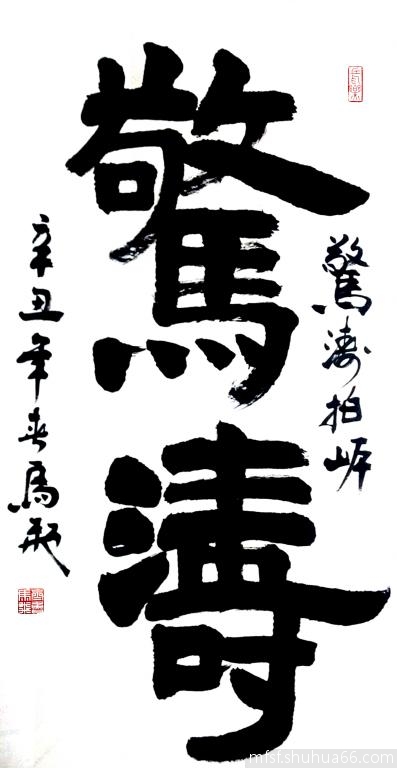 驚濤拍岸
驚濤
辛丑年春馬
mfsf.shuhua66.com